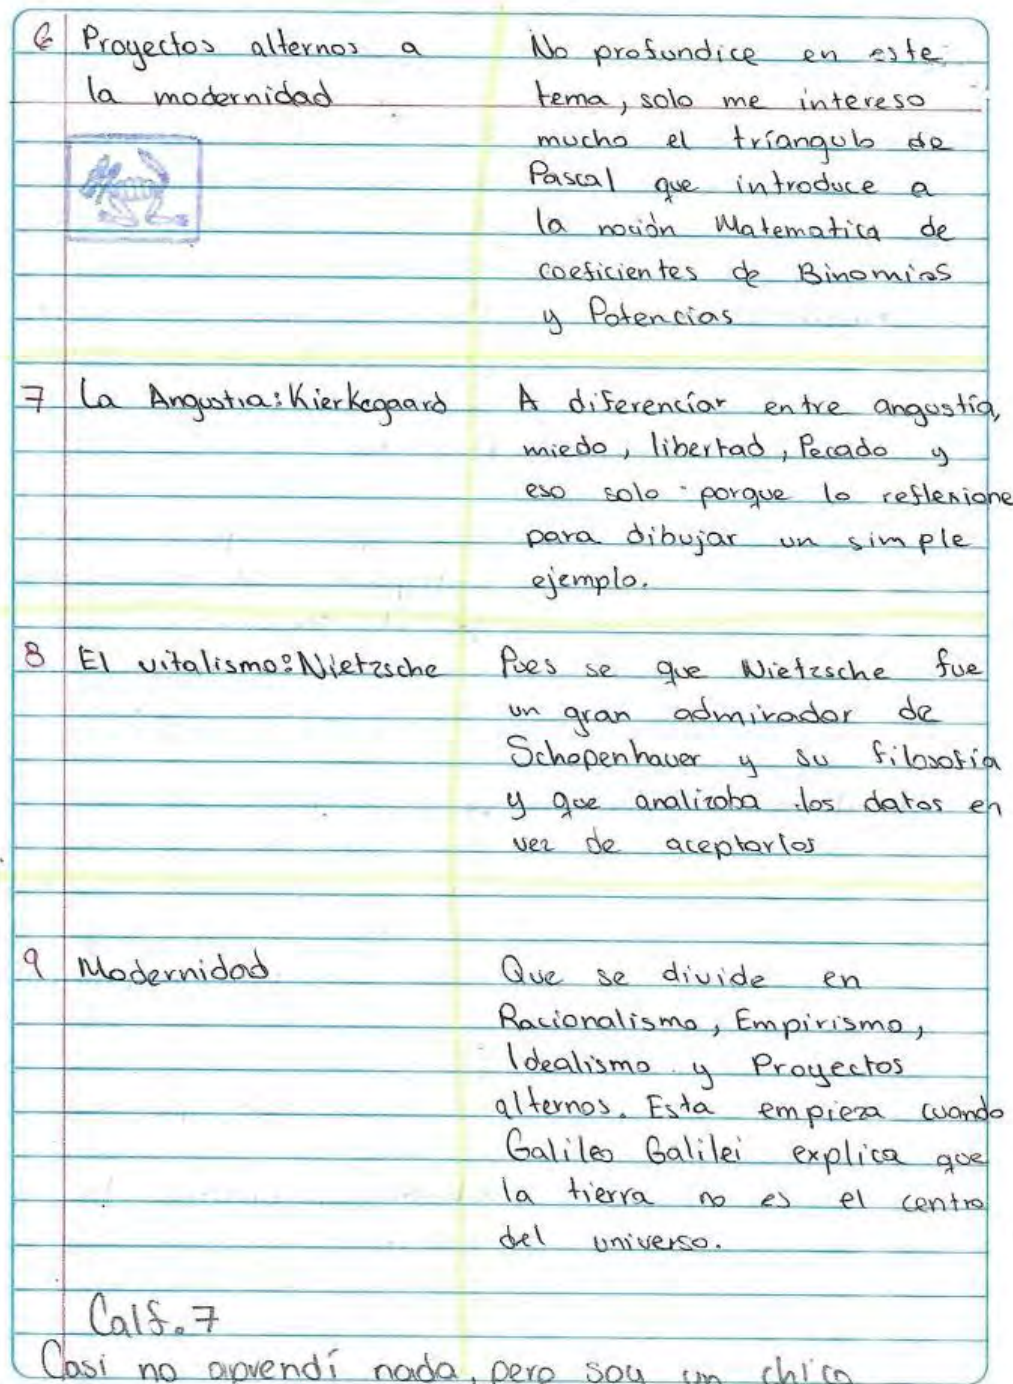 6 Proyectos alternos a
la modernidad
No profundice en este
tema, solo me intereso
mucho el tríangulo de
Pascal que introduce a
la noción Matematica de
coeficientes de Binomios
y Potencias
7 La Angustia: Kierkegaard
A diferenciar entre angustia,
miedo, libertad, Pecado y
eso solo porque lo reflexione
para dibujar un simple
ejemplo.
8 El vitalismo: Nietzsche
Pues se que Nietzsche fue
un gran admirador de
Schopenhauer y su filosofía
y que analizaba los datos en
vez de aceptarlos
9 Modernidad
Que se divide en
Racionalismo, Empirismo,
Idealismo y Proyectos
alternos. Esta empieza cuando
Galileo Galilei explica que
la tierra no es el centro
del universo.
Calf. 7
Casi no aprendí nada, pero soy un chico